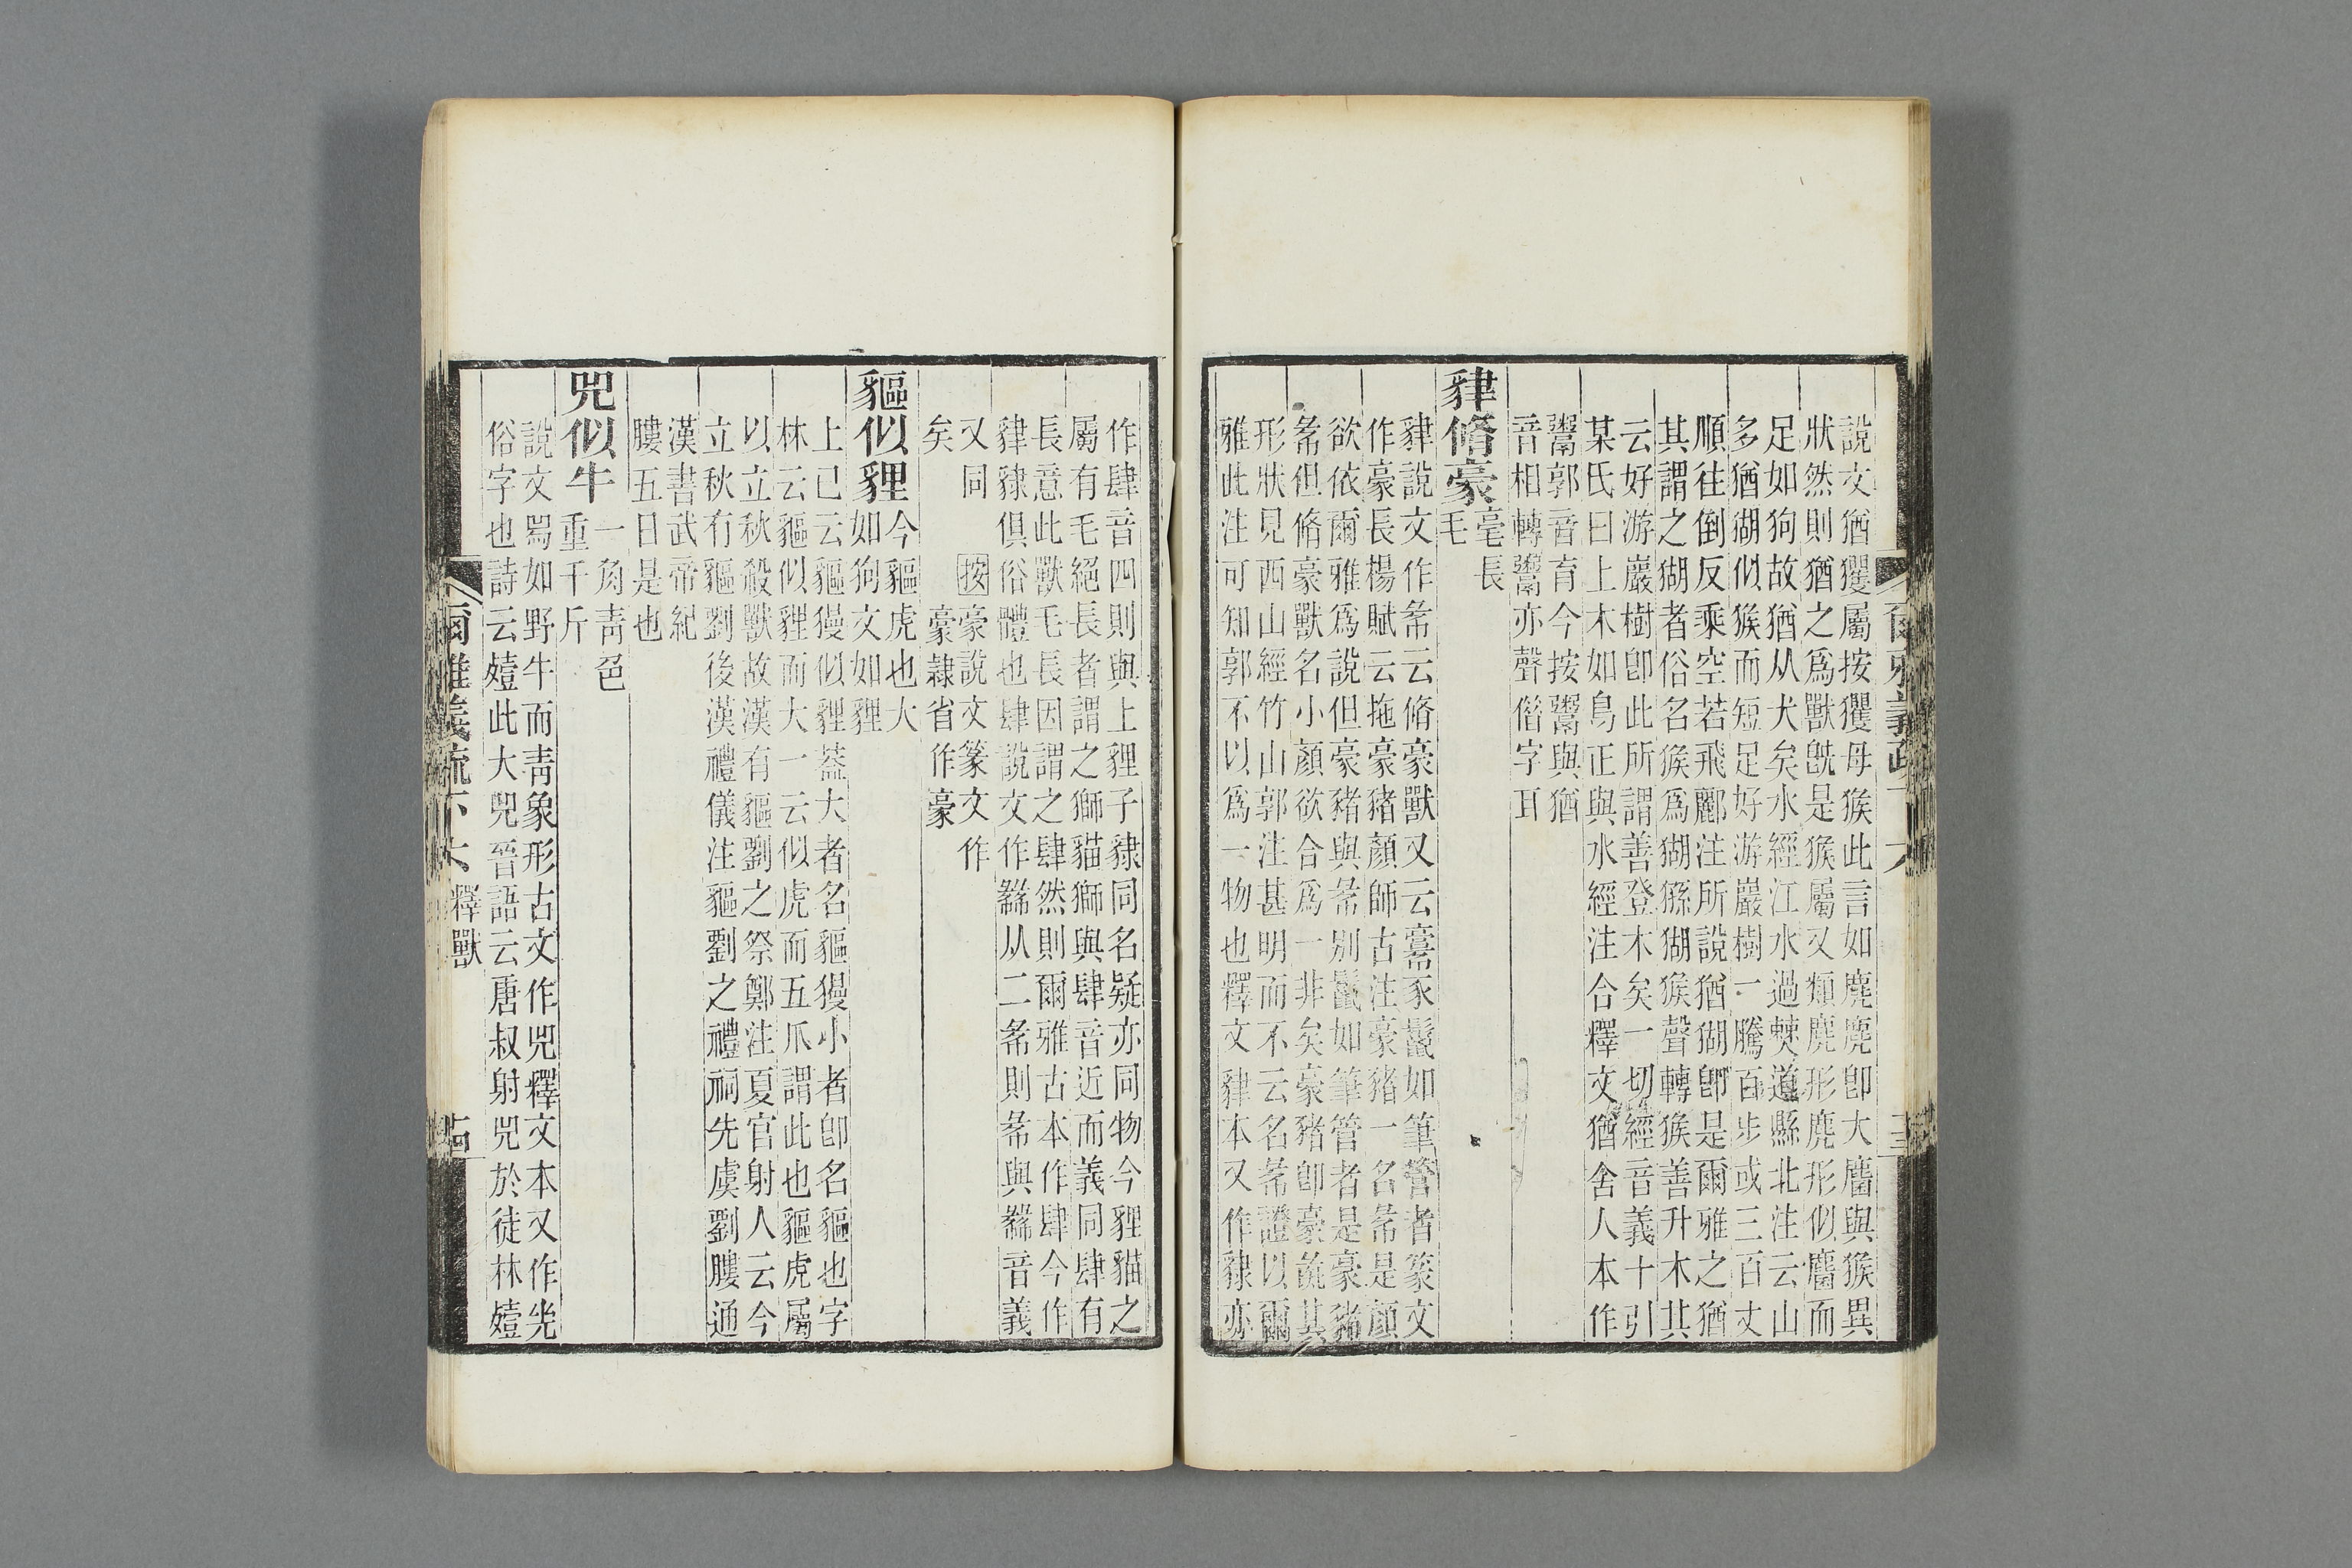 說文猶玃屬按玃母猴此言如麂麂卽大麕與猴異
狀然則猶之爲獸旣是猴屬又類麂形麂形似麕而
足如狗故猶从犬矣水經江水過僰道縣北注云山
多猶猢似猴而短足好游巖樹一騰百步或三百丈
順往倒反乘空若飛酈注所說猶猢卽是爾雅之猶
其謂之猢者俗名猴爲猢猻猢猴聲轉猴善升木其
云好游巖樹卽此所謂善登木矣一切經音義十引
某氏曰上木如鳥正與水經注合釋文猶舍人本作
鬻郭音育今按鬻與猶
音相轉鬻亦聲借字耳
貄脩豪
毫長
毛
貄說文作㣇云脩豪獸又云𣫺豕鬣如筆管者篆文
作豪長楊賦云拖豪豬顏師古注豪豬一名㣇是顏
欲依爾雅爲說但豪豬與㣇別鬣如筆管者是豪豬
㣇但脩豪獸名小顏欲合爲一非矣豪豬卽豪彘其
形狀見西山經竹山郭注甚明而不云名㣇證以爾
雅此注可知郭不以爲一物也釋文貄本又作𧳙亦
作肆音四則與上貍子𧳙同名疑亦同物今貍貓之
屬有毛絕長者謂之獅貓獅與肆音近而義同肆有
長意此獸毛長因謂之肆然則爾雅古本作肆今作
貄𧳙俱俗體也肆說文作𢑱从二㣇則㣇與𢑱音義
又同 按豪說文篆文作
矣 豪隸省作豪
貙似貍
今貙虎也大
如狗文如貍
上已云貙獌似貍葢大者名貙獌小者卽名貙也字
林云貙似貍而大一云似虎而五爪謂此也貙虎屬
以立秋殺獸故漢有貙劉之祭鄭注夏官射人云今
立秋有貙劉後漢禮儀注貙劉之禮祠先虞劉膢通
漢書武帝紀
膢五日是也
兕似牛
一角靑色
重千斤
說文𤉡如野牛而靑象形古文作兕釋文本又作光
俗字也詩云殪此大兕晉語云唐叔射兕於徒林殪
爾雅義疏下六 釋獸 古